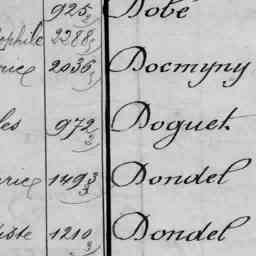 925 3 Dobé
ophile 2288 3
rice 2036 3 Docmyny
les 972 3 Doguet
rice 1493 3 Dondel
iste 1210 3 Dondel